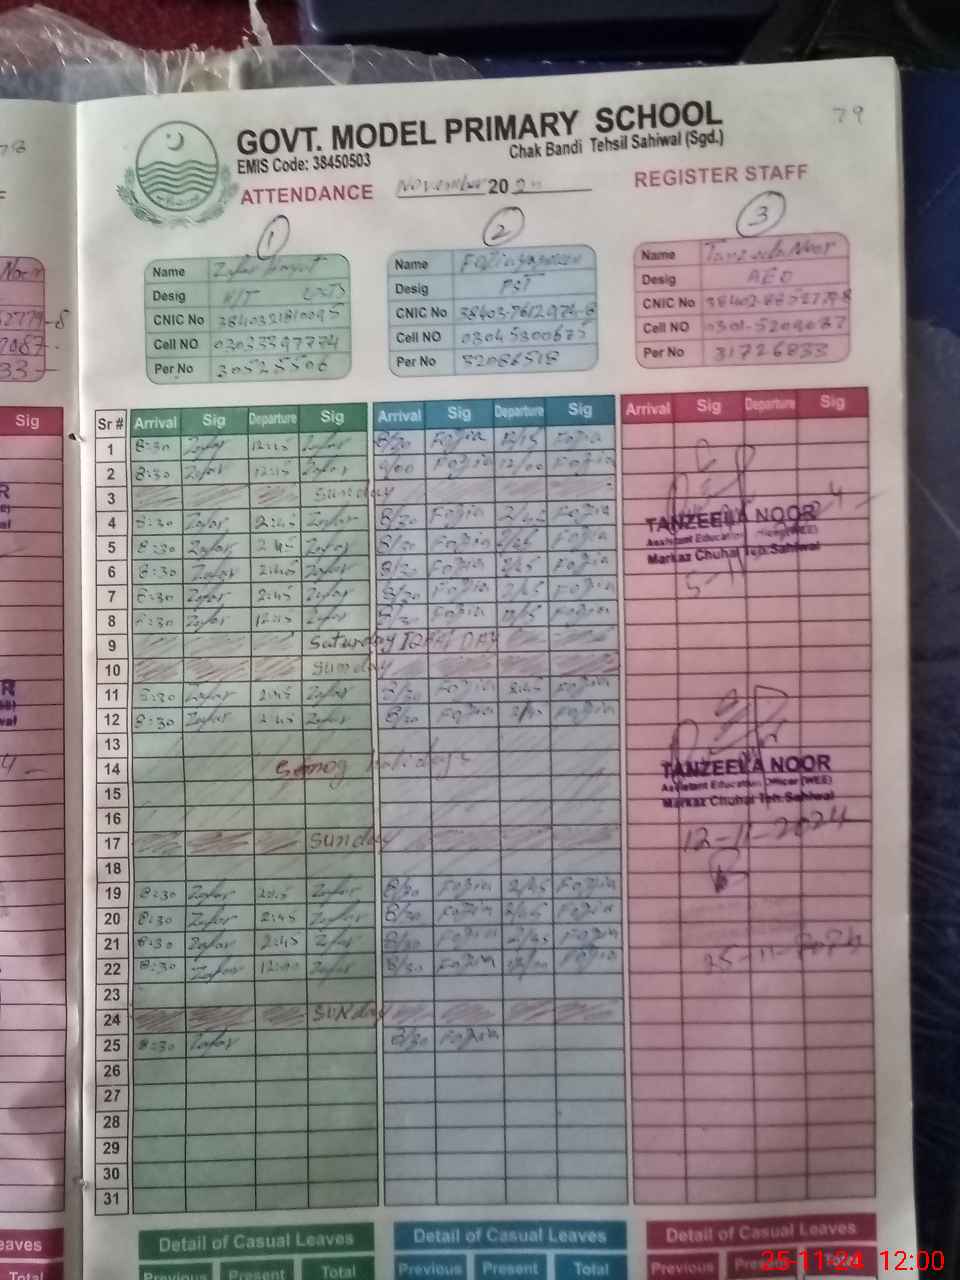 79
GOVT. MODEL PRIMARY SCHOOL
EMIS Code: 38450503
Chak Bandi Tehsil Sahiwal (Sgd.)
ATTENDANCE November 20 REGISTER STAFF
1 2 3
Name Zafar
Desig
CNIC No 3840321810095
Cell NO 03033397774
Per No 30525506
Name
Desig PST
CNIC No 38403-7612974-8
Cell NO 03045300675
Per No 32086518
Name Tanzeela Noor
Desig AEO
CNIC No 38402-8852779-8
Cell NO 0301-5209087
Per No 31726833
Sr # Arrival Sig Departure Sig Arrival Sig Departure Sig Arrival Sig Departure Sig
1 8:30 Zafar 12:15 Zafar 8/30 Fozia 12/15 Fozia
2 8:30 Zafar 12:15 Zafar 9/00 Fozia 12/00 Fozia
3 Sunday
4 8:30 Zafar 2:45 Zafar 8/30 Fozia 2/45 Fozia
TANZEELA NOOR
Assistant Education Officer (WEE)
Markaz Chuhal Teh: Sahiwal
5 8:30 Zafar 2:45 Zafar 8/30 Fozia 2/45 Fozia
6 8:30 Zafar 2:45 Zafar 8/30 Fozia 2/45 Fozia
7 8:30 Zafar 2:45 Zafar 8/30 Fozia 2/45 Fozia
8 8:30 Zafar 12:15 Zafar 8/30 Fozia 12/15 Fozia
9 Saturday IQBAL DAY
10 Sunday
11 8:30 Zafar 2:45 Zafar 8/30 Fozia 2:45 Fozia
12 8:30 Zafar 2:45 Zafar 8/30 Fozia 2/45 Fozia
13
14 Smog holidays
TANZEELA NOOR
Assistant Education Officer (WEE)
Markaz Chuhal Teh: Sahiwal
15
16
17 Sunday
12-11-2024
18
19 8:30 Zafar 2:45 Zafar 8/30 Fozia 2/45 Fozia
20 8:30 Zafar 2:45 Zafar 8/30 Fozia 2/45 Fozia
21 8:30 Zafar 2:45 Zafar 8/30 Fozia 2/45 Fozia
22 8:30 Zafar 12:00 Zafar 8/30 Fozia 12/00 Fozia
25-11-2024
23
24 Sunday
25 8:30 Zafar 8/30 Fozia
26
27
28
29
30
31
Detail of Casual Leaves Detail of Casual Leaves Detail of Casual Leaves
Previous Present Total Previous Present Total Previous Present Total
25-11-24 12:00
78
Noor
-8
33
Sig
eaves
Total